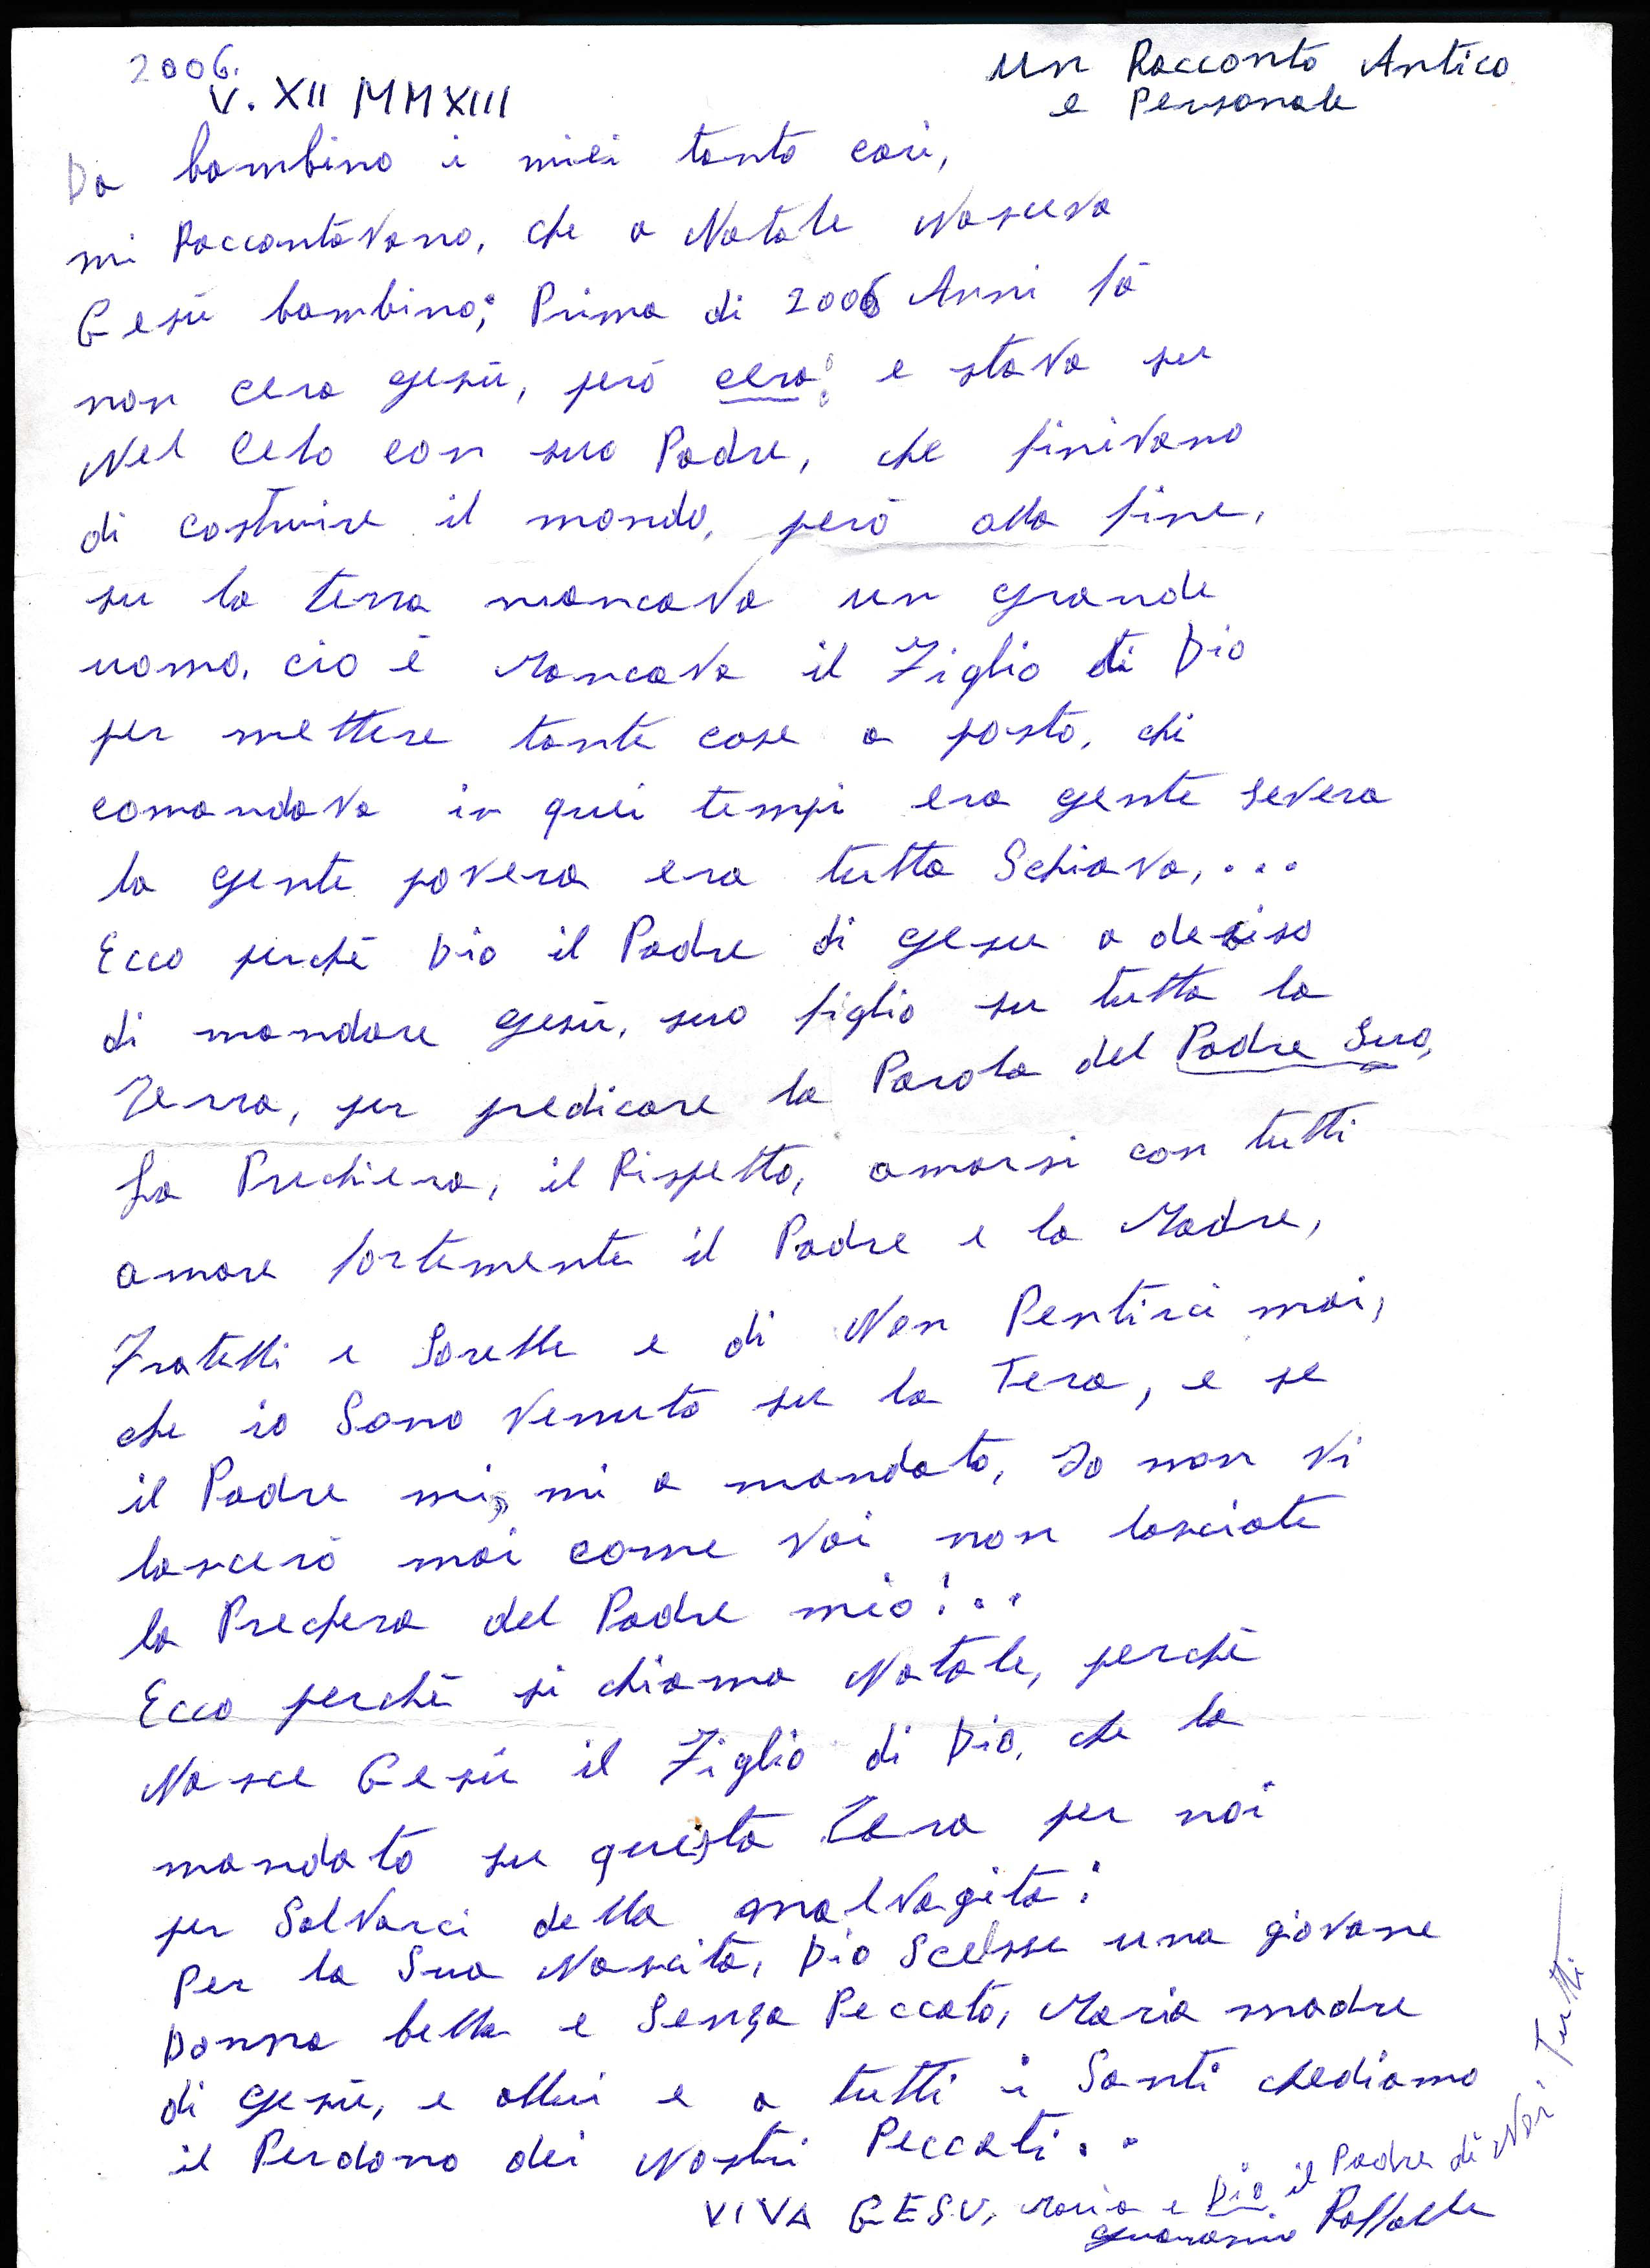 2006.
V. XII MMXIII
Un Racconto Antico
e Personale
Da bambino i miei tanto cari,
mi Raccontavano, che a Natale Nasceva
Gesù bambino; Prima di 2006 Anni fà
non cera gesù, però cera! e stava su
Nel Celo con suo Padre, che finivano
di costruire il mondo, però alla fine,
su la terra mancava un grande
uomo. cio è Mancava il Figlio di Dio
per mettere tante cose a posto, chi
comandava in quei tempi era gente severa
la gente povera era tutta Schiava,...
Ecco perchè Dio il Padre di gesu a deciso
di mandare gesù, suo figlio su tutta la
Terra, per predicare la Parola del Padre Suo,
La Prechiera, il Rispetto, amarsi con tutti
amare fortemente il Padre e la Madre,
Fratelli e Sorelle e di Non Pentirci mai,
che io Sono Venuto su la Tera, e se
il Padre mi, mi a mandato, Io non vi
lascerò mai come voi non lasciate
la Prechera del Padre mio!..
Ecco perchè si chiama Natale, perchè
Nasce Gesù il Figlio di Dio, che la
mandato su questa Tera per noi
per Salvarci della malvagità!
Per la Sua Nascita, Dio Scelsse una giovane
Donna bella e Senza Peccato, Maria madre
di gesù, e allui e a tutti i Santi chediamo
il Perdono dei Nostri Peccati..
VIVA GESU, Maria e Dio il Padre di Noi Tutti
Raffaele